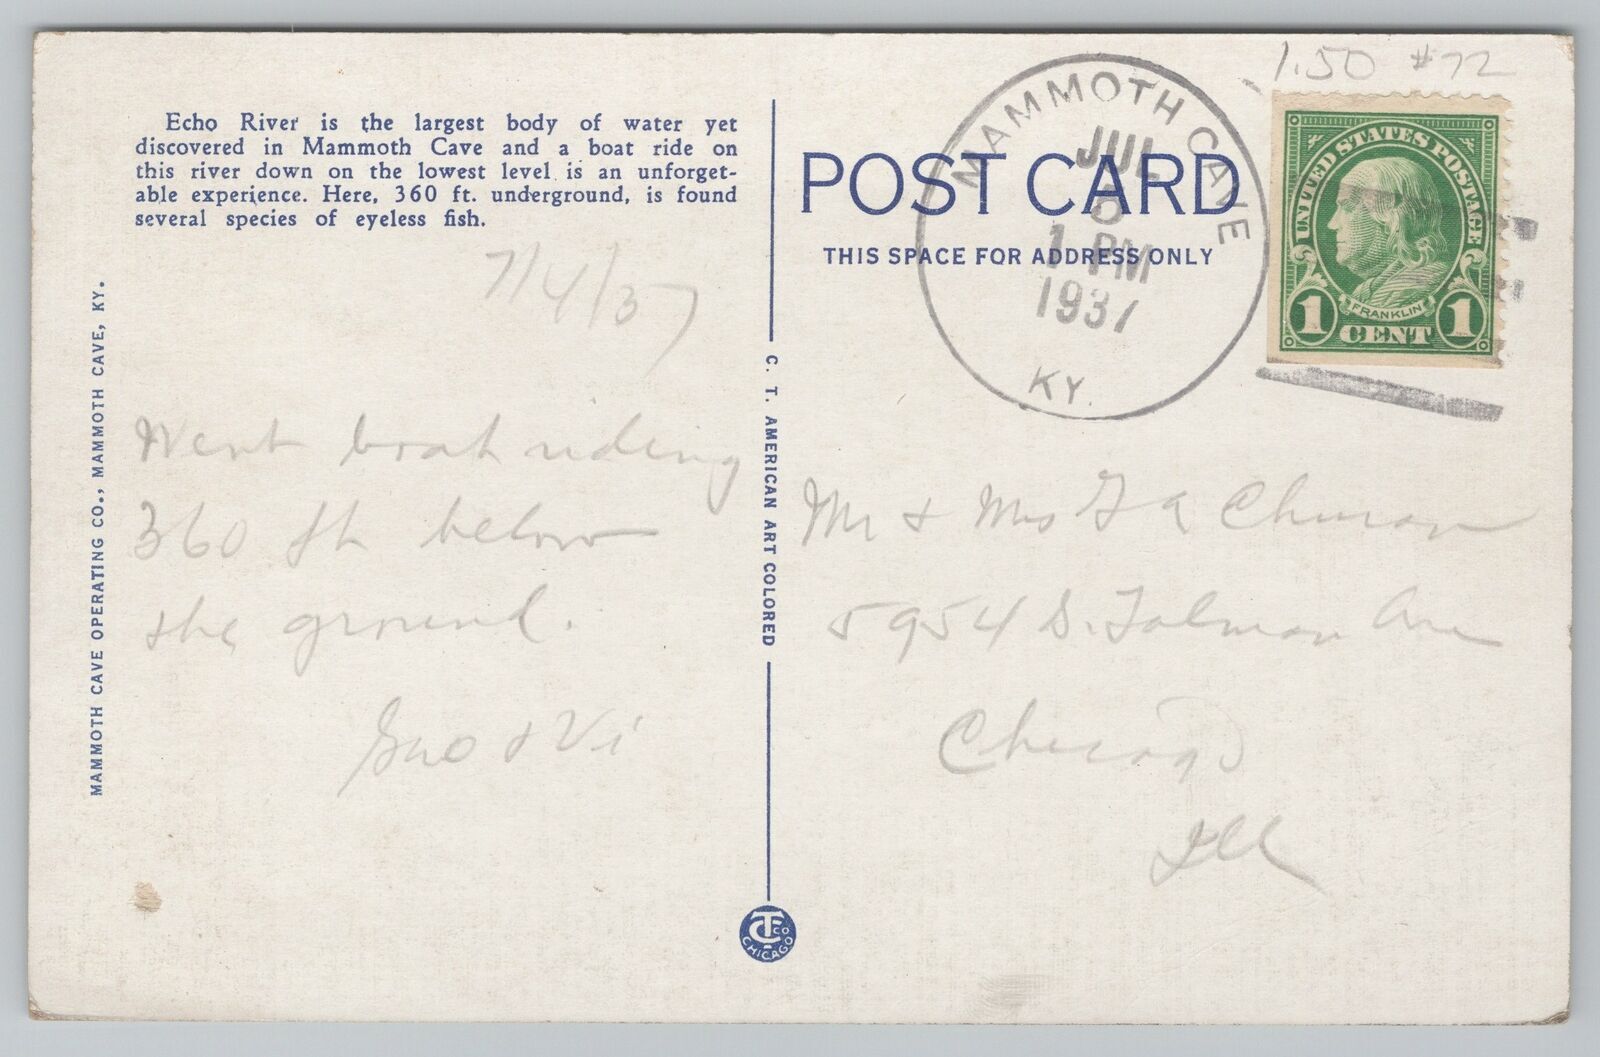 Echo River is the largest body of water yet
discovered in Mammoth Cave and a boat ride on
this river down on the lowest level is an unforget-
able experience. Here, 360 ft. underground, is found
several species of eyeless fish.
7/4/37
Went boat riding
360 ft below
the ground.
& Vi
MAMMOTH CAVE OPERATING CO., MAMMOTH CAVE, KY.
C. T. AMERICAN ART COLORED
CTCO
CHICAGO
1.50 #72
POST CARD
THIS SPACE FOR ADDRESS ONLY
MAMMOTH CAVE
JUL
1 PM
1937
KY.
UNITED STATES POSTAGE
FRANKLIN
1 CENT 1
Mr & Mrs
5954 S. Talman Ave
Chicago
Ill